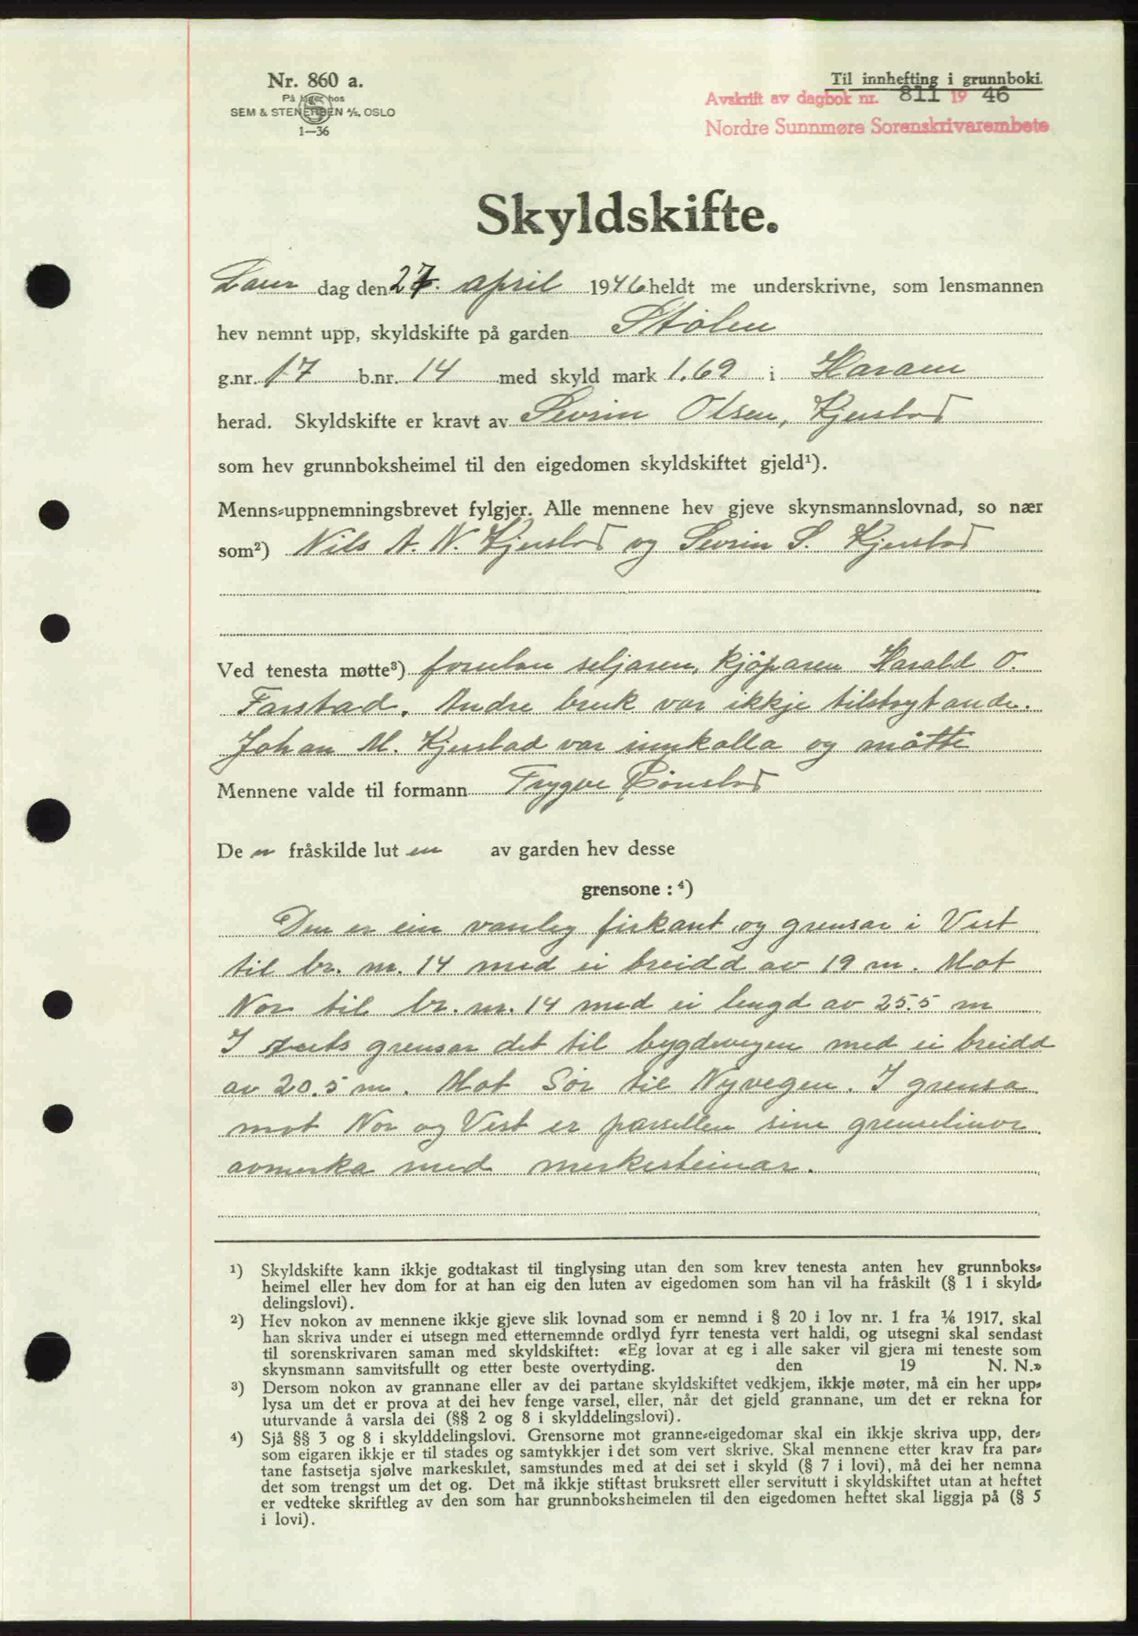 Nr. 860 a.
På lager hos
SEM & STENERSEN A/S, OSLO
1—36
Til innhefting i grunnboki.
Avskrift av dagbok nr. 811 1946
Nordre Sunnmøre Sorenskrivarembete
Skyldskifte.
Laur dag den 27. april 1946 heldt me underskrivne, som lensmannen
hev nemnt upp, skyldskifte på garden Stølen
g.nr. 17 b.nr. 14 med skyld mark 1.69 i Haram
herad. Skyldskifte er kravt av Sevrin Olsen, Kjerstad
som hev grunnboksheimel til den eigedomen skyldskiftet gjeld¹).
Menns-uppnemningsbrevet fylgjer. Alle mennene hev gjeve skynsmannslovnad, so nær
som²) Nils A. N. Kjerstad og Sevrin S. Kjerstad
Ved tenesta møtte³) forutan seljaren, kjöparen Harald O.
Farstad. Andre bruk var ikkje tilstøytande.
Johan M. Kjerstad var innkalla og møtte
Mennene valde til formann Trygve Rønstad
De n fråskilde lut en av garden hev desse
grensone : ⁴)
Den er ein vanleg firkant og grensar i Vest
til br. nr. 14 med ei breidd av 19 m. Mot
Nor til br. nr. 14 med ei lengd av 25.5 m
I austs grensar det til bygdevegen med ei breidd
av 20.5 m. Mot Sør til Nyvegen. I grensa
mot Nor og Vest er parsellen sine grenselinor
avmerka med merkesteinar.
¹) Skyldskifte kann ikkje godtakast til tinglysing utan den som krev tenesta anten hev grunnboks-
heimel eller hev dom for at han eig den luten av eigedomen som han vil ha fråskilt (§ 1 i skyld-
delingslovi).
²) Hev nokon av mennene ikkje gjeve slik lovnad som er nemnd i § 20 i lov nr. 1 fra 1/6 1917, skal
han skriva under ei utsegn med etternemnde ordlyd fyrr tenesta vert haldi, og utsegni skal sendast
til sorenskrivaren saman med skyldskiftet: «Eg lovar at eg i alle saker vil gjera mi teneste som
skynsmann samvitsfullt og etter beste overtyding. den 19 N. N.»
³) Dersom nokon av grannane eller av dei partane skyldskiftet vedkjem, ikkje møter, må ein her upp-
lysa um det er prova at dei hev fenge varsel, eller, når det gjeld grannane, um det er rekna for
uturvande å varsla dei (§§ 2 og 8 i skylddelingslovi).
⁴) Sjå §§ 3 og 8 i skylddelingslovi. Grensorne mot granne-eigedomar skal ein ikkje skriva upp, der-
som eigaren ikkje er til stades og samtykkjer i det som vert skrive. Skal mennene etter krav fra par-
tane fastsetja sjølve markeskilet, samstundes med at dei set i skyld (§ 7 i lovi), må dei her nemna
det som trengst um det og. Det må ikkje stiftast bruksrett eller servitutt i skyldskiftet utan at heftet
er vedteke skriftleg av den som har grunnboksheimelen til den eigedomen heftet skal liggja på (§ 5
i lovi).